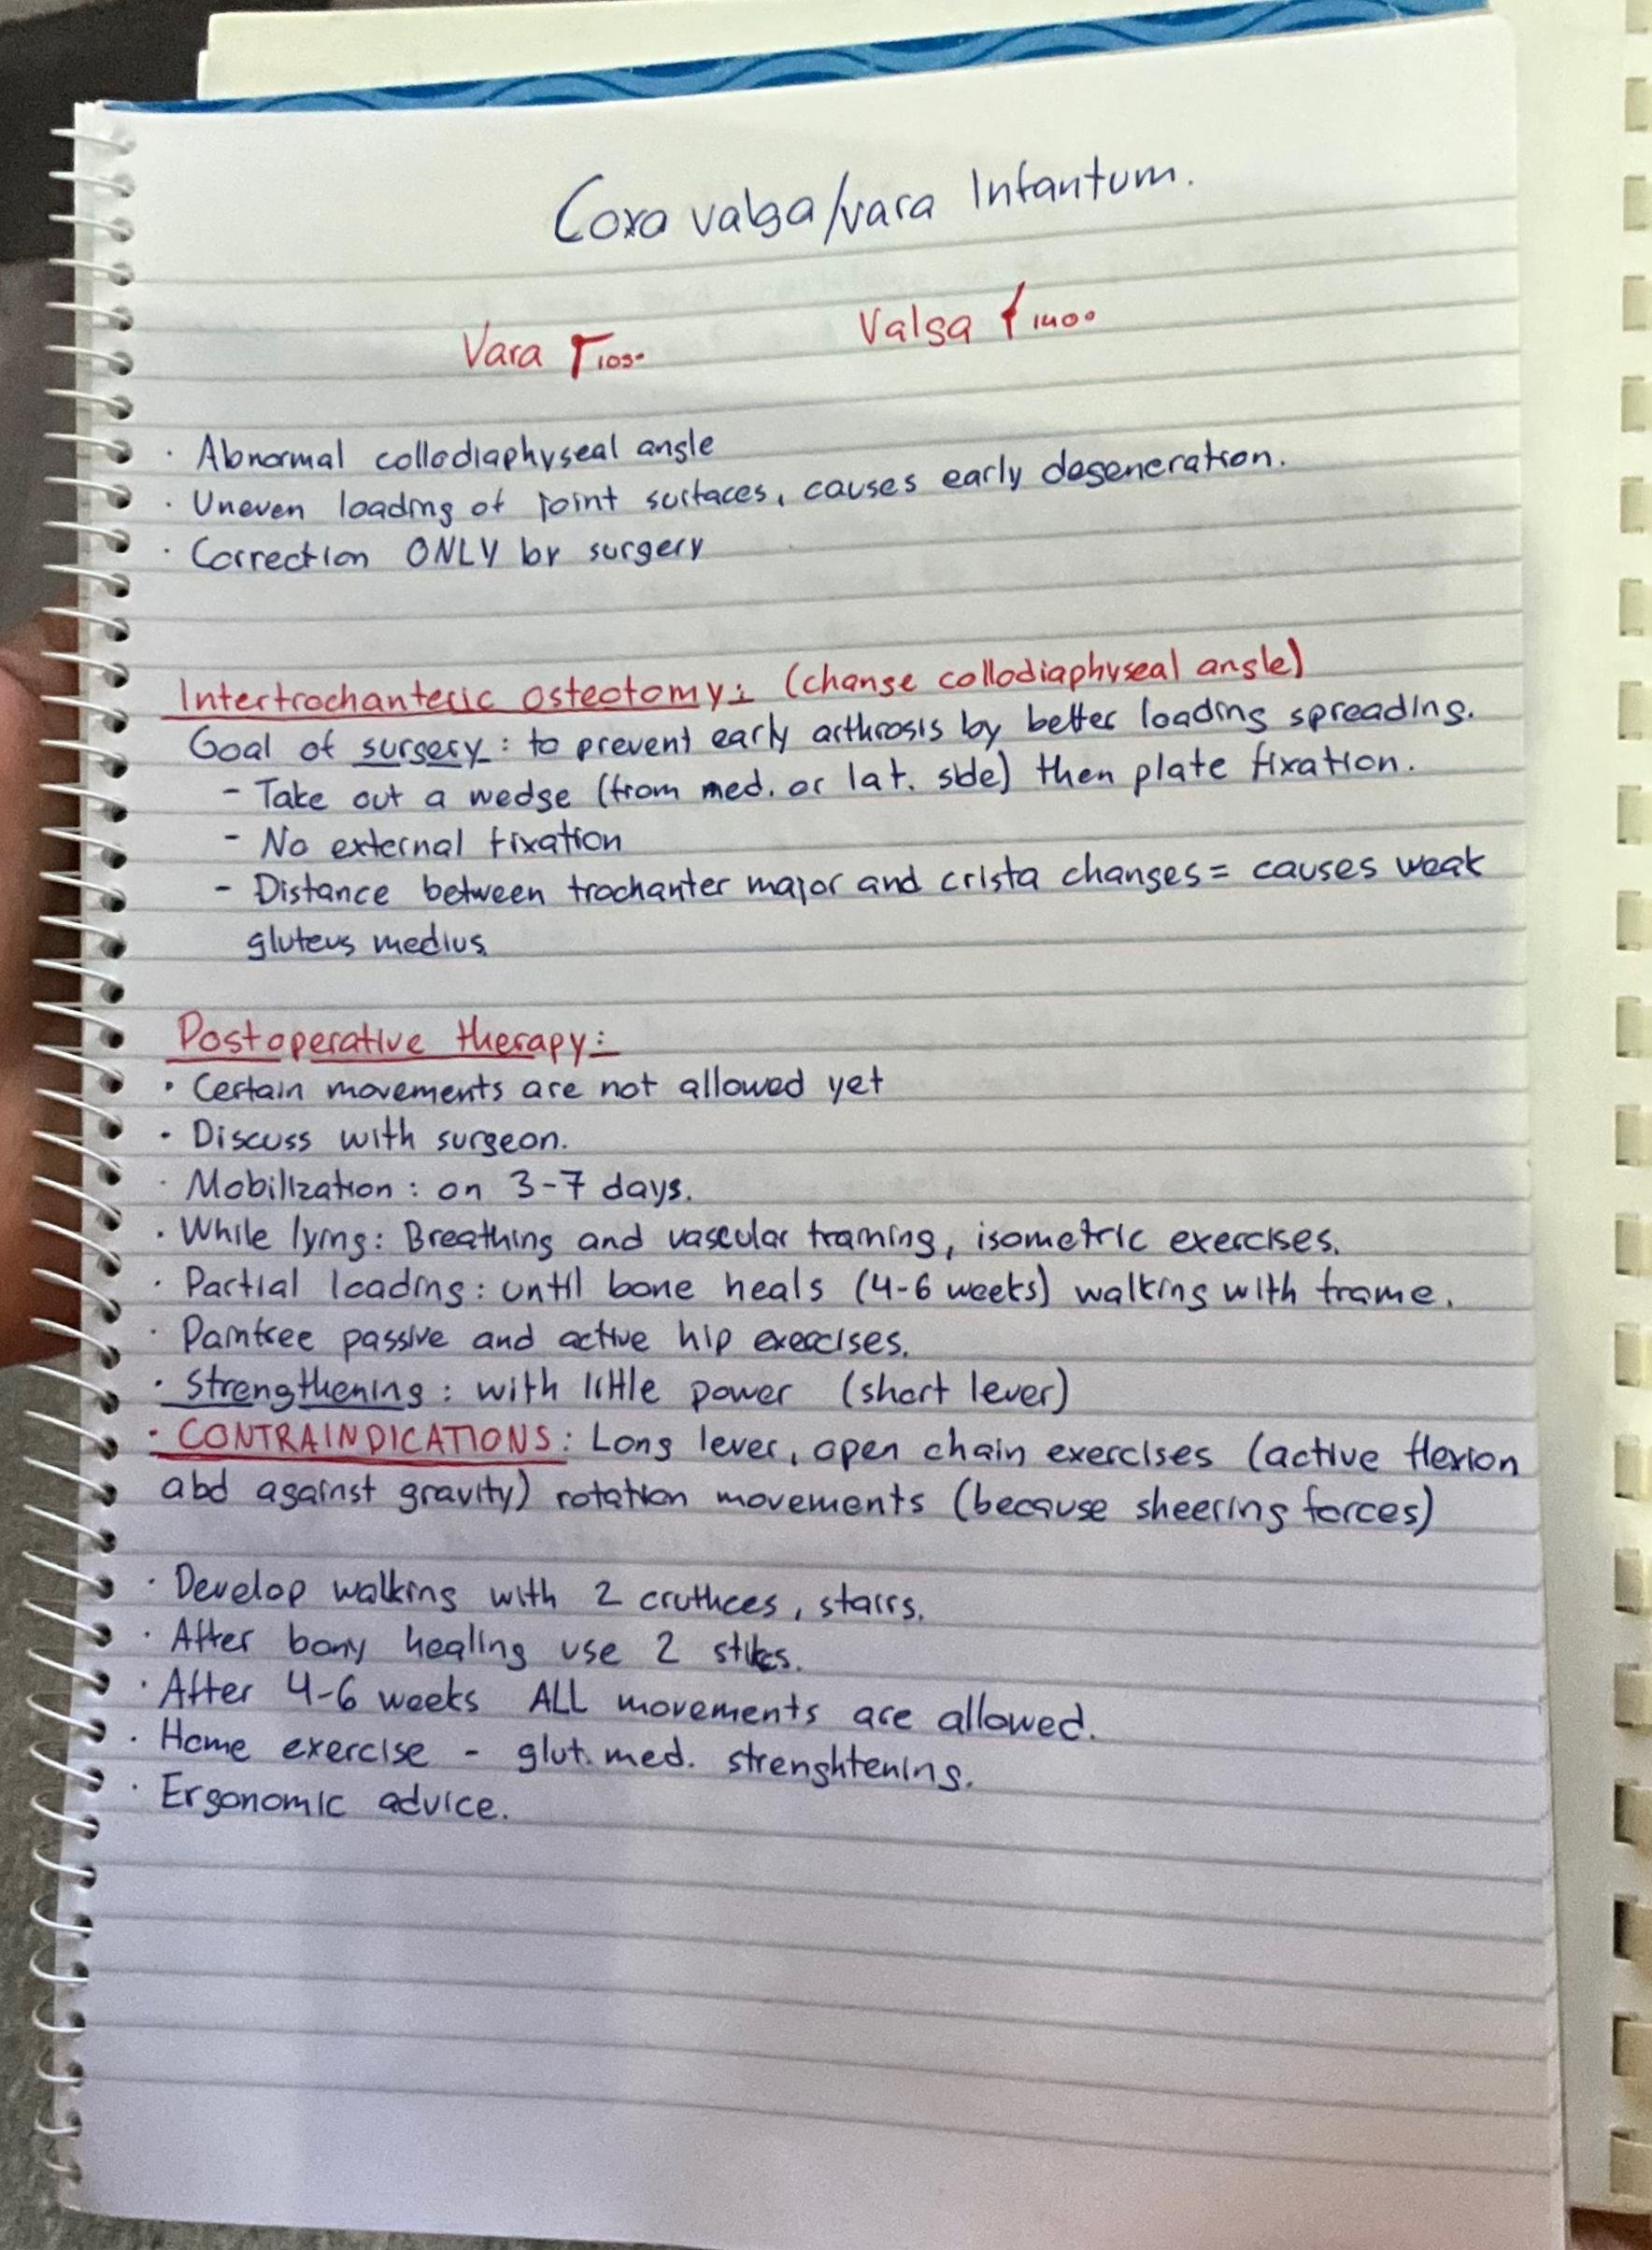 Coxa valga/vara Infantum.
Vara 105° Valga 140°
· Abnormal collodiaphyseal angle
· Uneven loading of joint surfaces, causes early degeneration.
· Correction ONLY by surgery
Intertrochanteric osteotomy: (change collodiaphyseal angle)
Goal of surgery: to prevent early arthrosis by better loading spreading.
- Take out a wedge (from med. or lat. side) then plate fixation.
- No external fixation
- Distance between trochanter major and crista changes = causes weak
gluteus medius
Postoperative therapy:
· Certain movements are not allowed yet
· Discuss with surgeon.
· Mobilization: on 3-7 days.
· While lying: Breathing and vascular training, isometric exercises.
· Partial loading: until bone heals (4-6 weeks) walking with frame.
· Painfree passive and active hip exercises.
· Strengthening: with little power (short lever)
· CONTRAINDICATIONS: Long lever, open chain exercises (active flexion
abd against gravity) rotation movements (because sheering forces)
· Develop walking with 2 cruthces, stairs.
· After bony healing use 2 stiks.
· After 4-6 weeks ALL movements are allowed.
· Home exercise - glut. med. strenghtening.
· Ergonomic advice.